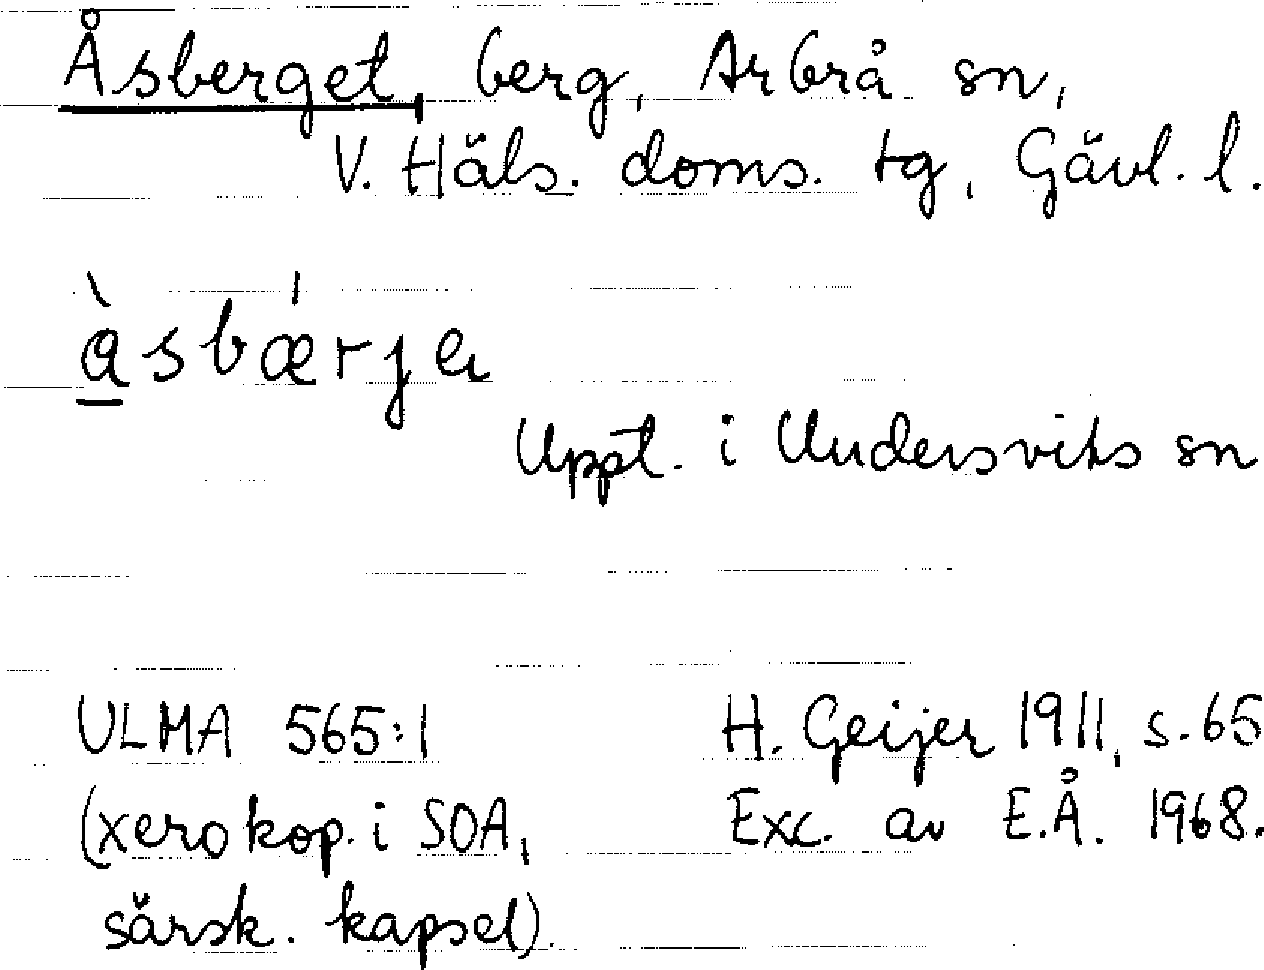 Åsberget, berg, Arbrå sn,
V. Häls. doms. tg, Gävl. l.
ày̲sbǽrjα
Uppt. i Undersviks sn
ULMA 565:1 H. Geijer 1911, s. 65
(xerokop. i SOA, Exc. av E.Å. 1968.
särsk. kapsel).